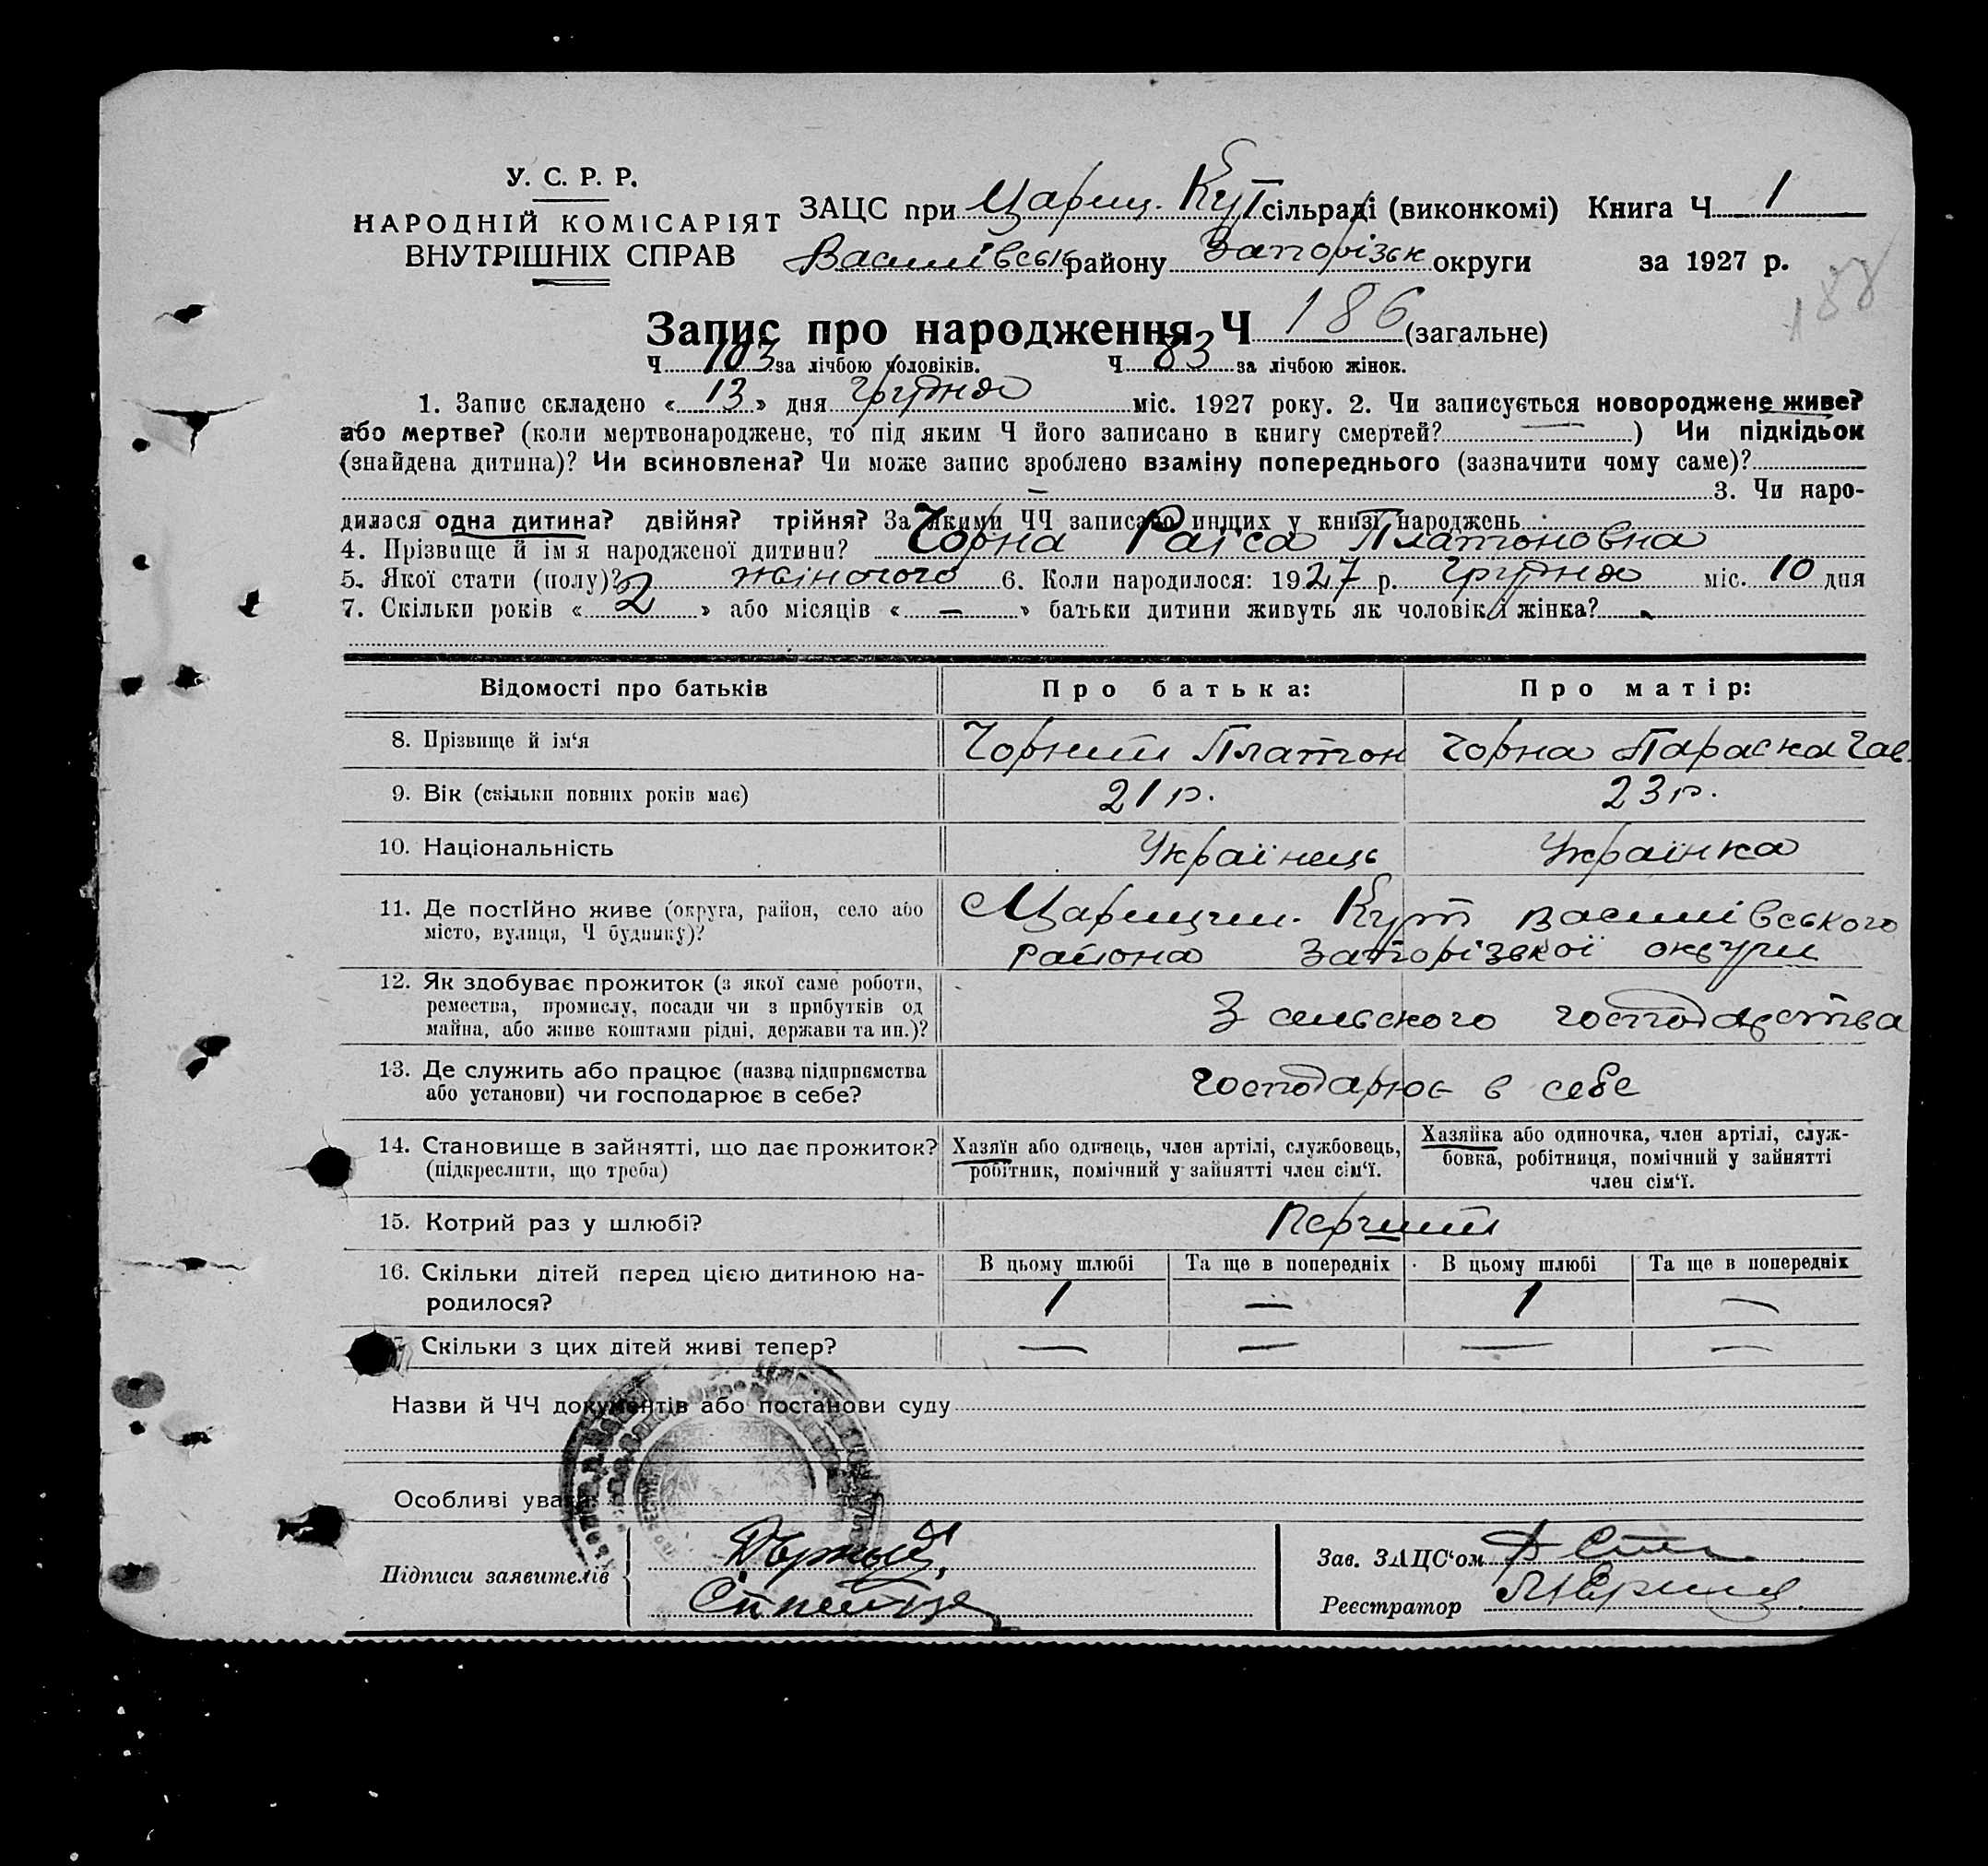 У. С. Р. Р.
НАРОДНІЙ КОМІСАРІЯТ
ВНУТРІШНІХ СПРАВ
ЗАЦС при Цариц. Кут сільраді (виконкомі) Книга Ч 1
Василівськ району Запорізьк округи за 1927 р.
188
Запис про народження Ч 186 (загальне)
Ч 103 за лічбою чоловіків. Ч 83 за лічбою жінок.
1. Запис складено « 13 » дня грудня міс. 1927 року. 2. Чи записується новороджене живе?
або мертве? (коли мертвонароджене, то під яким Ч його записано в книгу смертей? — ) Чи підкідьок
(знайдена дитина)? Чи всиновлена? Чи може запис зроблено взаміну попереднього (зазначити чому саме)?
— 3. Чи наро-
дилася одна дитина? двійня? трійня? За якими ЧЧ записано инших у книзі народжень
4. Прізвище й ім'я народженої дитини? Чорна Раїса Платоновна
5. Якої стати (полу)? жіночого 6. Коли народилося: 1927 р. грудня міс. 10 дня
7. Скільки років « 2 » або місяців « — » батьки дитини живуть як чоловік і жінка?
Відомості про батьків Про батька: Про матір:
8. Прізвище й ім'я Чорний Платон Чорна Параска Гав.
9. Вік (скільки повних років має) 21 р. 23 р.
10. Національність Українець Українка
11. Де постійно живе (округа, район, село або
місто, вулиця, Ч будинку)?
Царицин. Кут Василівського
района Запорізької округи
12. Як здобуває прожиток (з якої саме роботи,
ремества, промислу, посади чи з прибутків од
майна, або живе коштами рідні, держави та ин.)?
З сельского господарства
13. Де служить або працює (назва підприємства
або установи) чи господарює в себе?
господарює в себе
14. Становище в зайнятті, що дає прожиток?
(підкреслити, що треба)
Хазяїн або одинець, член артілі, службовець,
робітник, помічний у зайнятті член сім'ї.
Хазяйка або одиночка, член артілі, служ-
бовка, робітниця, помічний у зайнятті
член сім'ї.
15. Котрий раз у шлюбі? Перший
16. Скільки дітей перед цією дитиною на-
родилося?
В цьому шлюбі Та ще в попередніх В цьому шлюбі Та ще в попередніх
1 — 1 —
Скільки з цих дітей живі тепер? — — — —
Назви й ЧЧ документів або постанови суду
Особливі уваги
Підписи заявителів
Зав. ЗАЦС'ом
Реєстратор